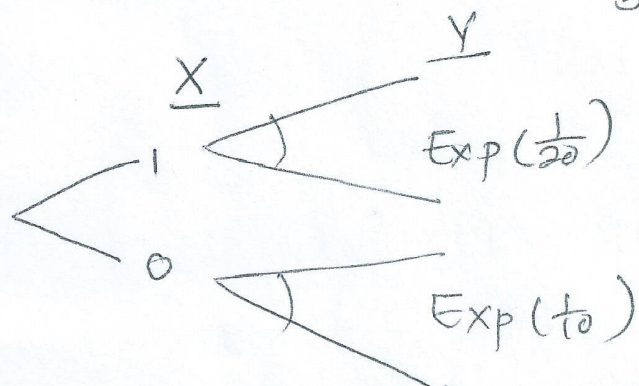 Y
X
1
Exp(1/20)
0
Exp(1/10)